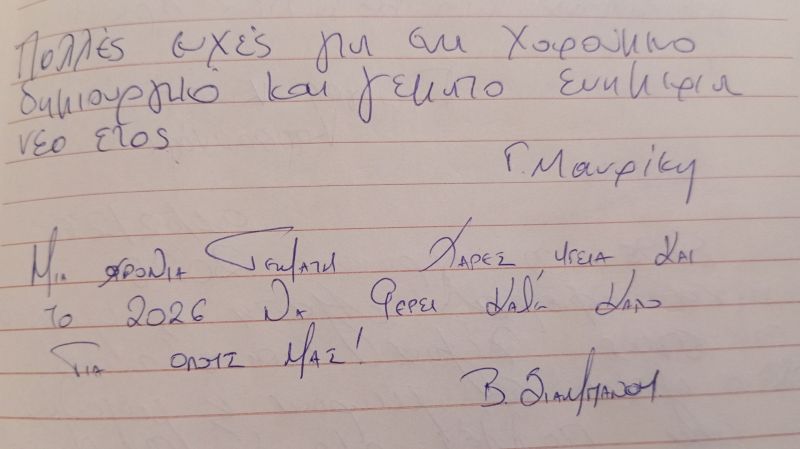 Πολλές ευχές για ένα χαρούμενο
δημιουργικό και γεμάτο ευημερία
νέο έτος
Γ. Μαυρίκη
Μια χρονια Γεματη Χαρες υγεια Και
το 2026 Να Φερει Καθε Καλο
Για ολους Μας!
Β.